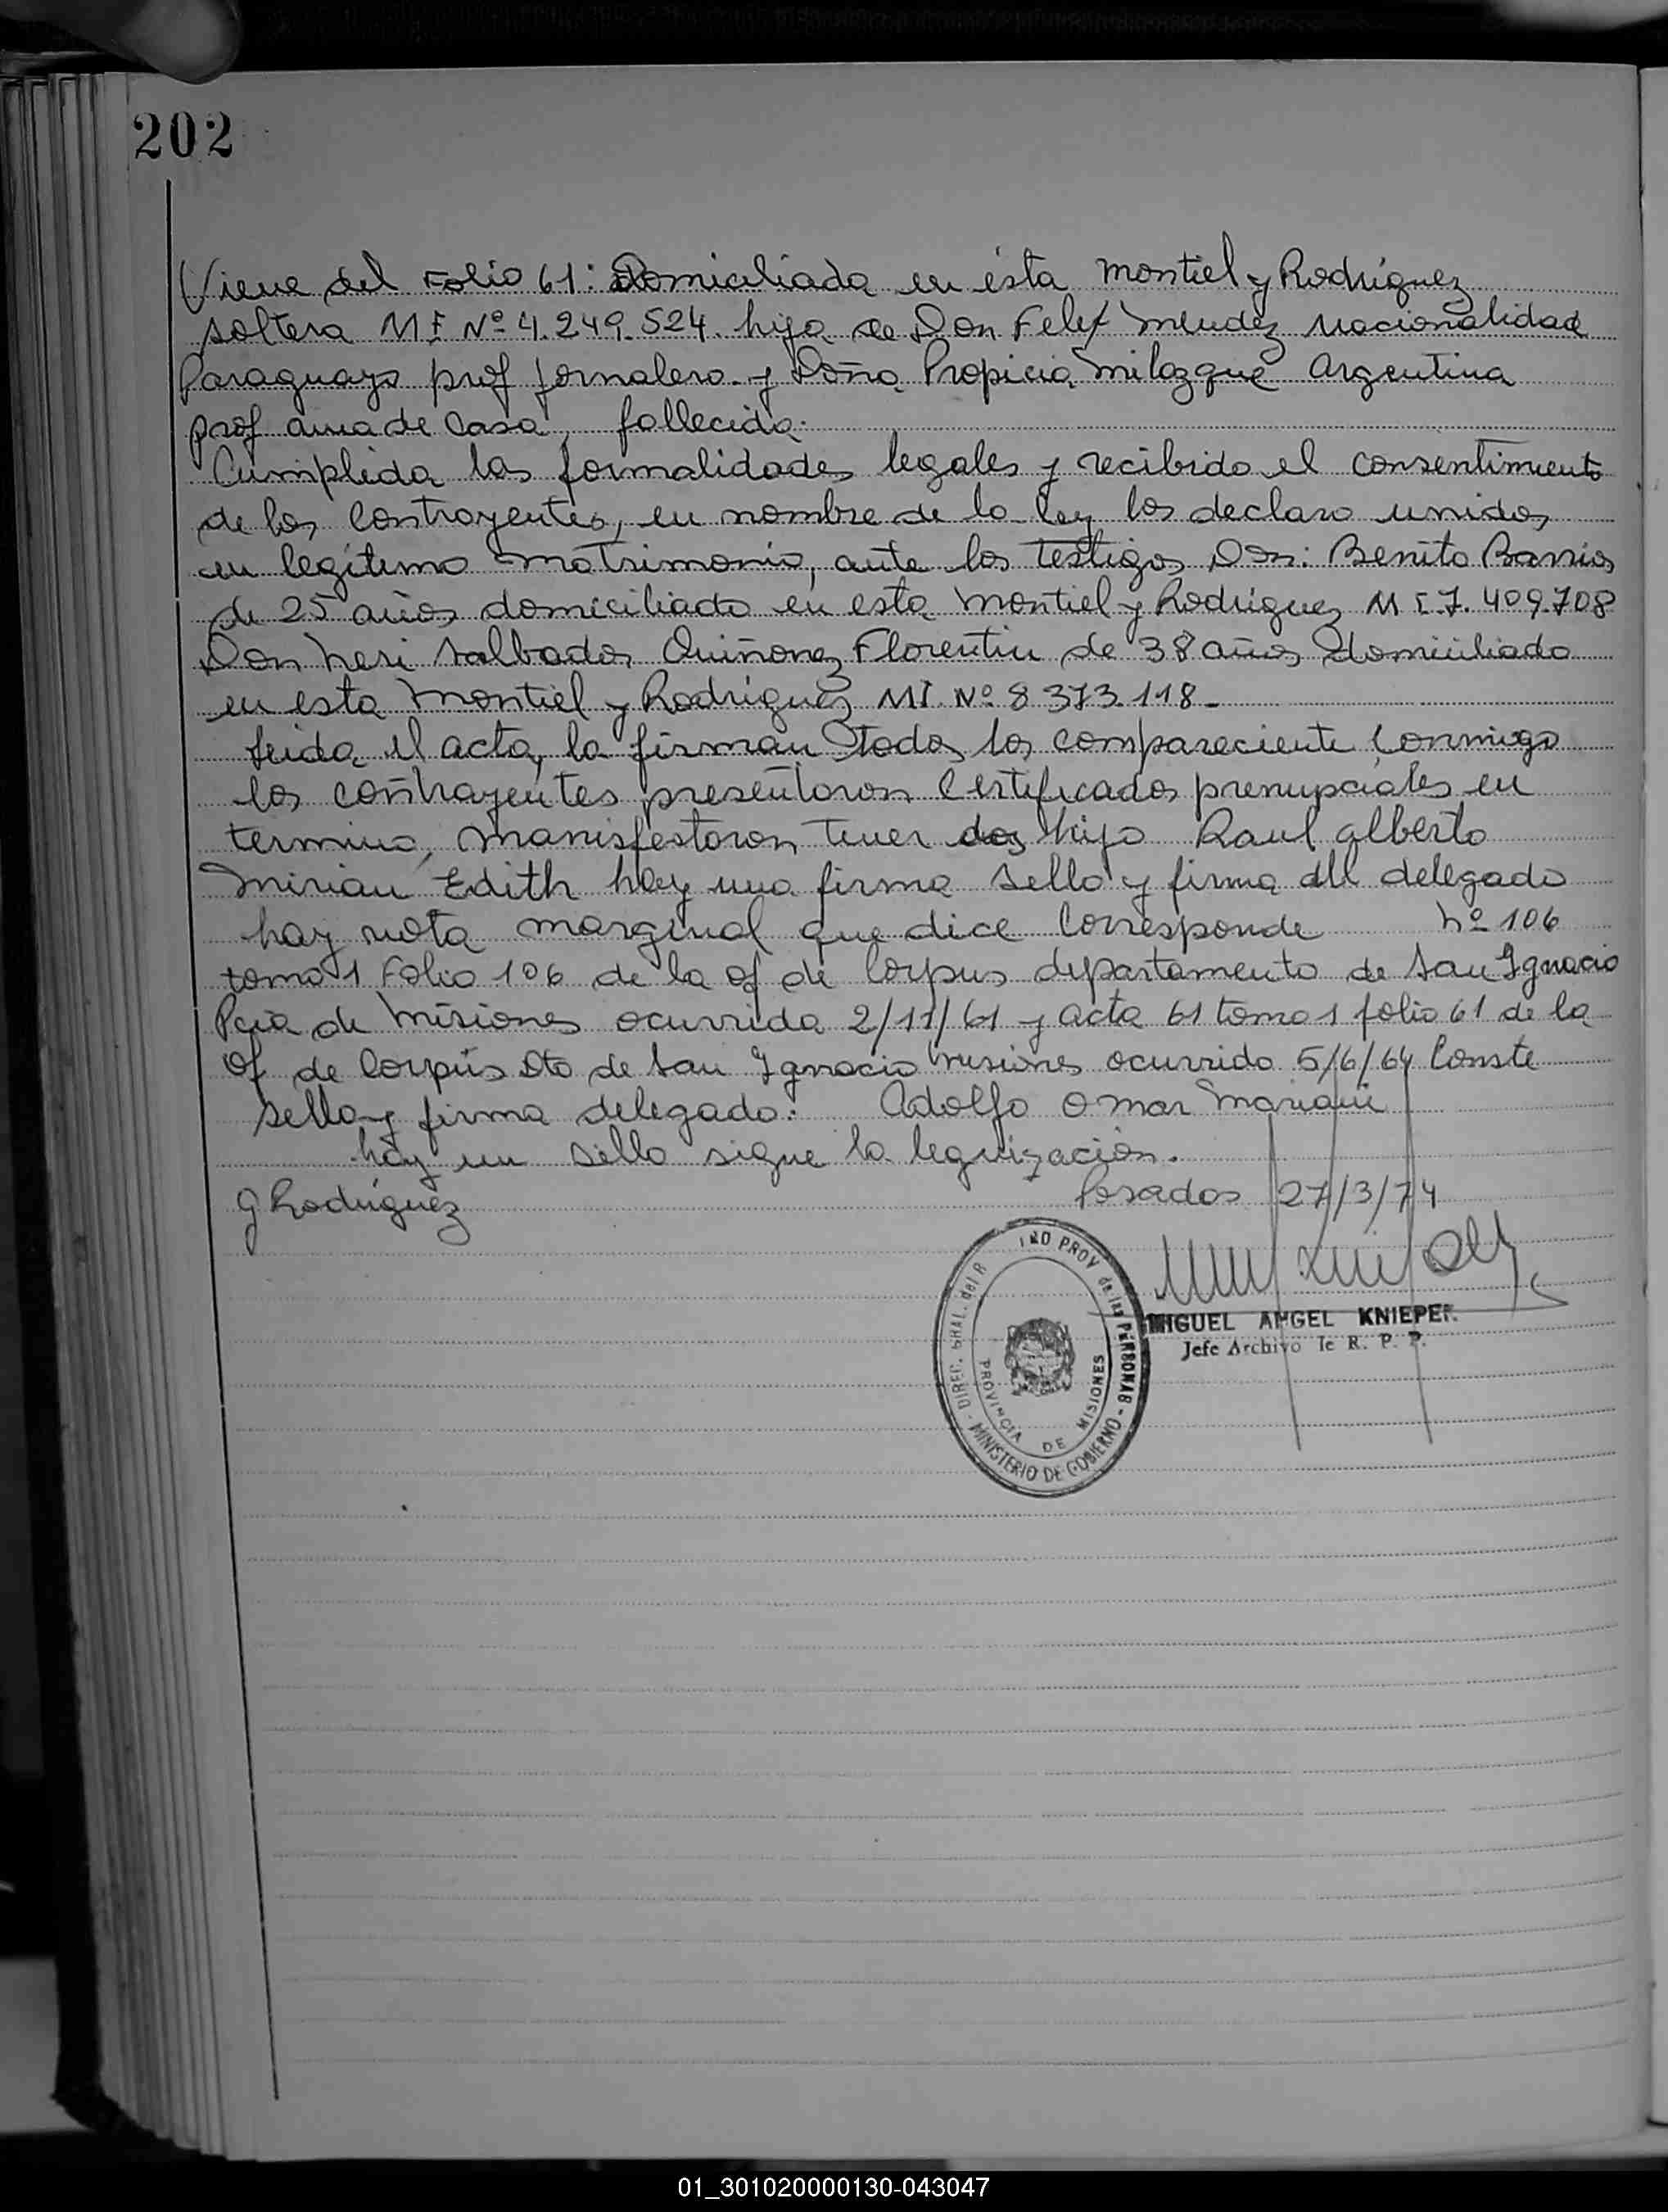 202
Viene del Folio 61: Domiciliada en ésta Montiel y Rodríguez
soltera M I Nº 4.249.524. hija de Don Felex Mendez nacionalidad
Paraguayo prof jornalero y Doña Propicia Milazque Argentina
prof ama de Casa, fallecida.
Cumplida las formalidades legales y recibido el consentimiento
de los Contrayentes, en nombre de la ley los declaro unidos
en legítimo matrimonio, ante los testigos Don: Benito Barrios
de 25 años domiciliado en esta Montiel y Rodríguez M I 7.409.708
Don Neri Salbador Quiñonez Florentin de 38 años domiciliado
en esta Montiel y Rodríguez MI. Nº 8 373.118.-
Leida el acta, la firman todos los compareciente Conmigo
los contrayentes presentaron Certificados prenupciales en
termino, manisfestaron tener dos hijo Raul Alberto
Mirian Edith hay una firma sello y firma del delegado
hay nota marginal que dice Corresponde Nº 106
tomo 1 Folio 106 de la of de Corpus departamento de San Ignacio
Pcia de Misiones ocurrida 2/11/61 y acta 61 tomo 1 folio 61 de la
Of de Corpus Dto de San Ignacio Misiones ocurrido 5/6/64 Conste
sello y firma delegado: Adolfo Omar Mariani
hay un sello sigue la
G Rodríguez
Posadas 27/3/74
MIGUEL ANGEL KNIEPER
Jefe Archivo de R. P. P.
DIREC. GRAL. del R IND PROV de las PERSONAS - MINISTERIO DE GOBIERNO -
PROVINCIA DE MISIONES
01_301020000130-043047